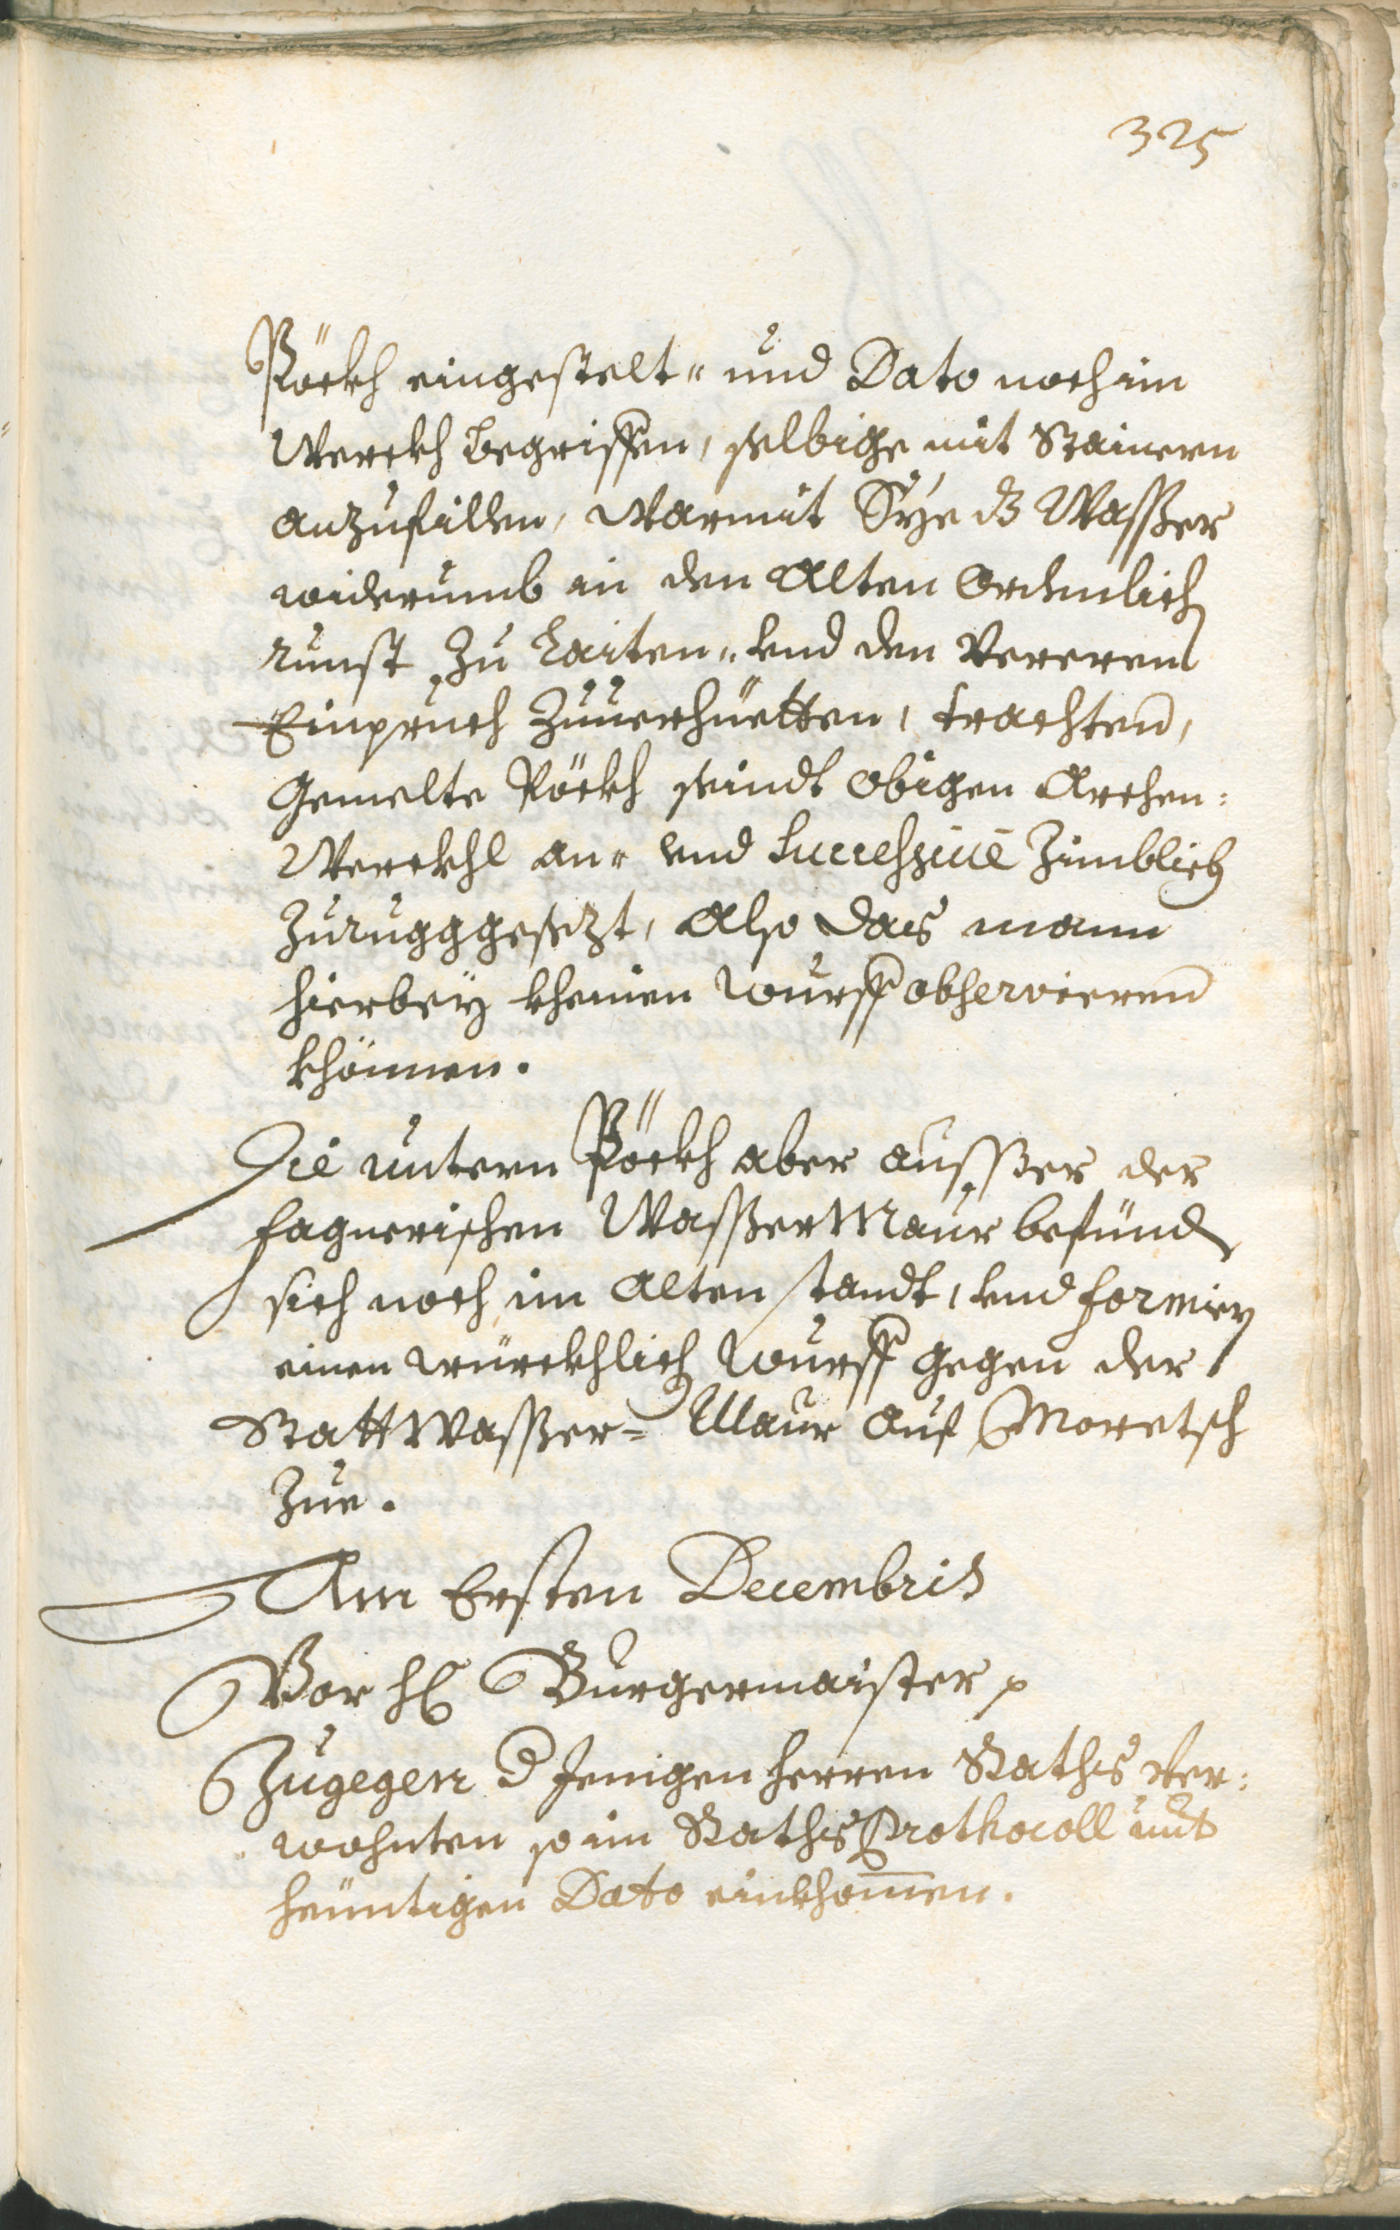 325
Pöckh eingestelt- und Dato noch im
Werckh begriffen, selbige mit Stainern
anzufillen, warmit Sye dz Wasser
widerumb in den Alten Ordenlich
runst zu laiten- vnd den Vereren
Einpruch zuuerhüetten, trachten,
Gemelte Pöckh seindt obigen Archen:
Werckhl an- vnd Successiuè zimblich
zurugggesezt, also das mann
hierbey kheinen wurff observieren
khönnen.
Die untern Pöckh aber ausser der
fagnerischen WasserMaur befünd
sich noch im Alten standt, vnd formiern
einen würckhlich wurff gegen der
StattWasser= Maur auf Maretsch
zue.
Am Ersten Decembris
Vor H Burgermaister p
Zugegen d Jenigen herren Raths ver:
wohnten so im RathsProthocoll unt
heüntigen Dato einkhom̄en.